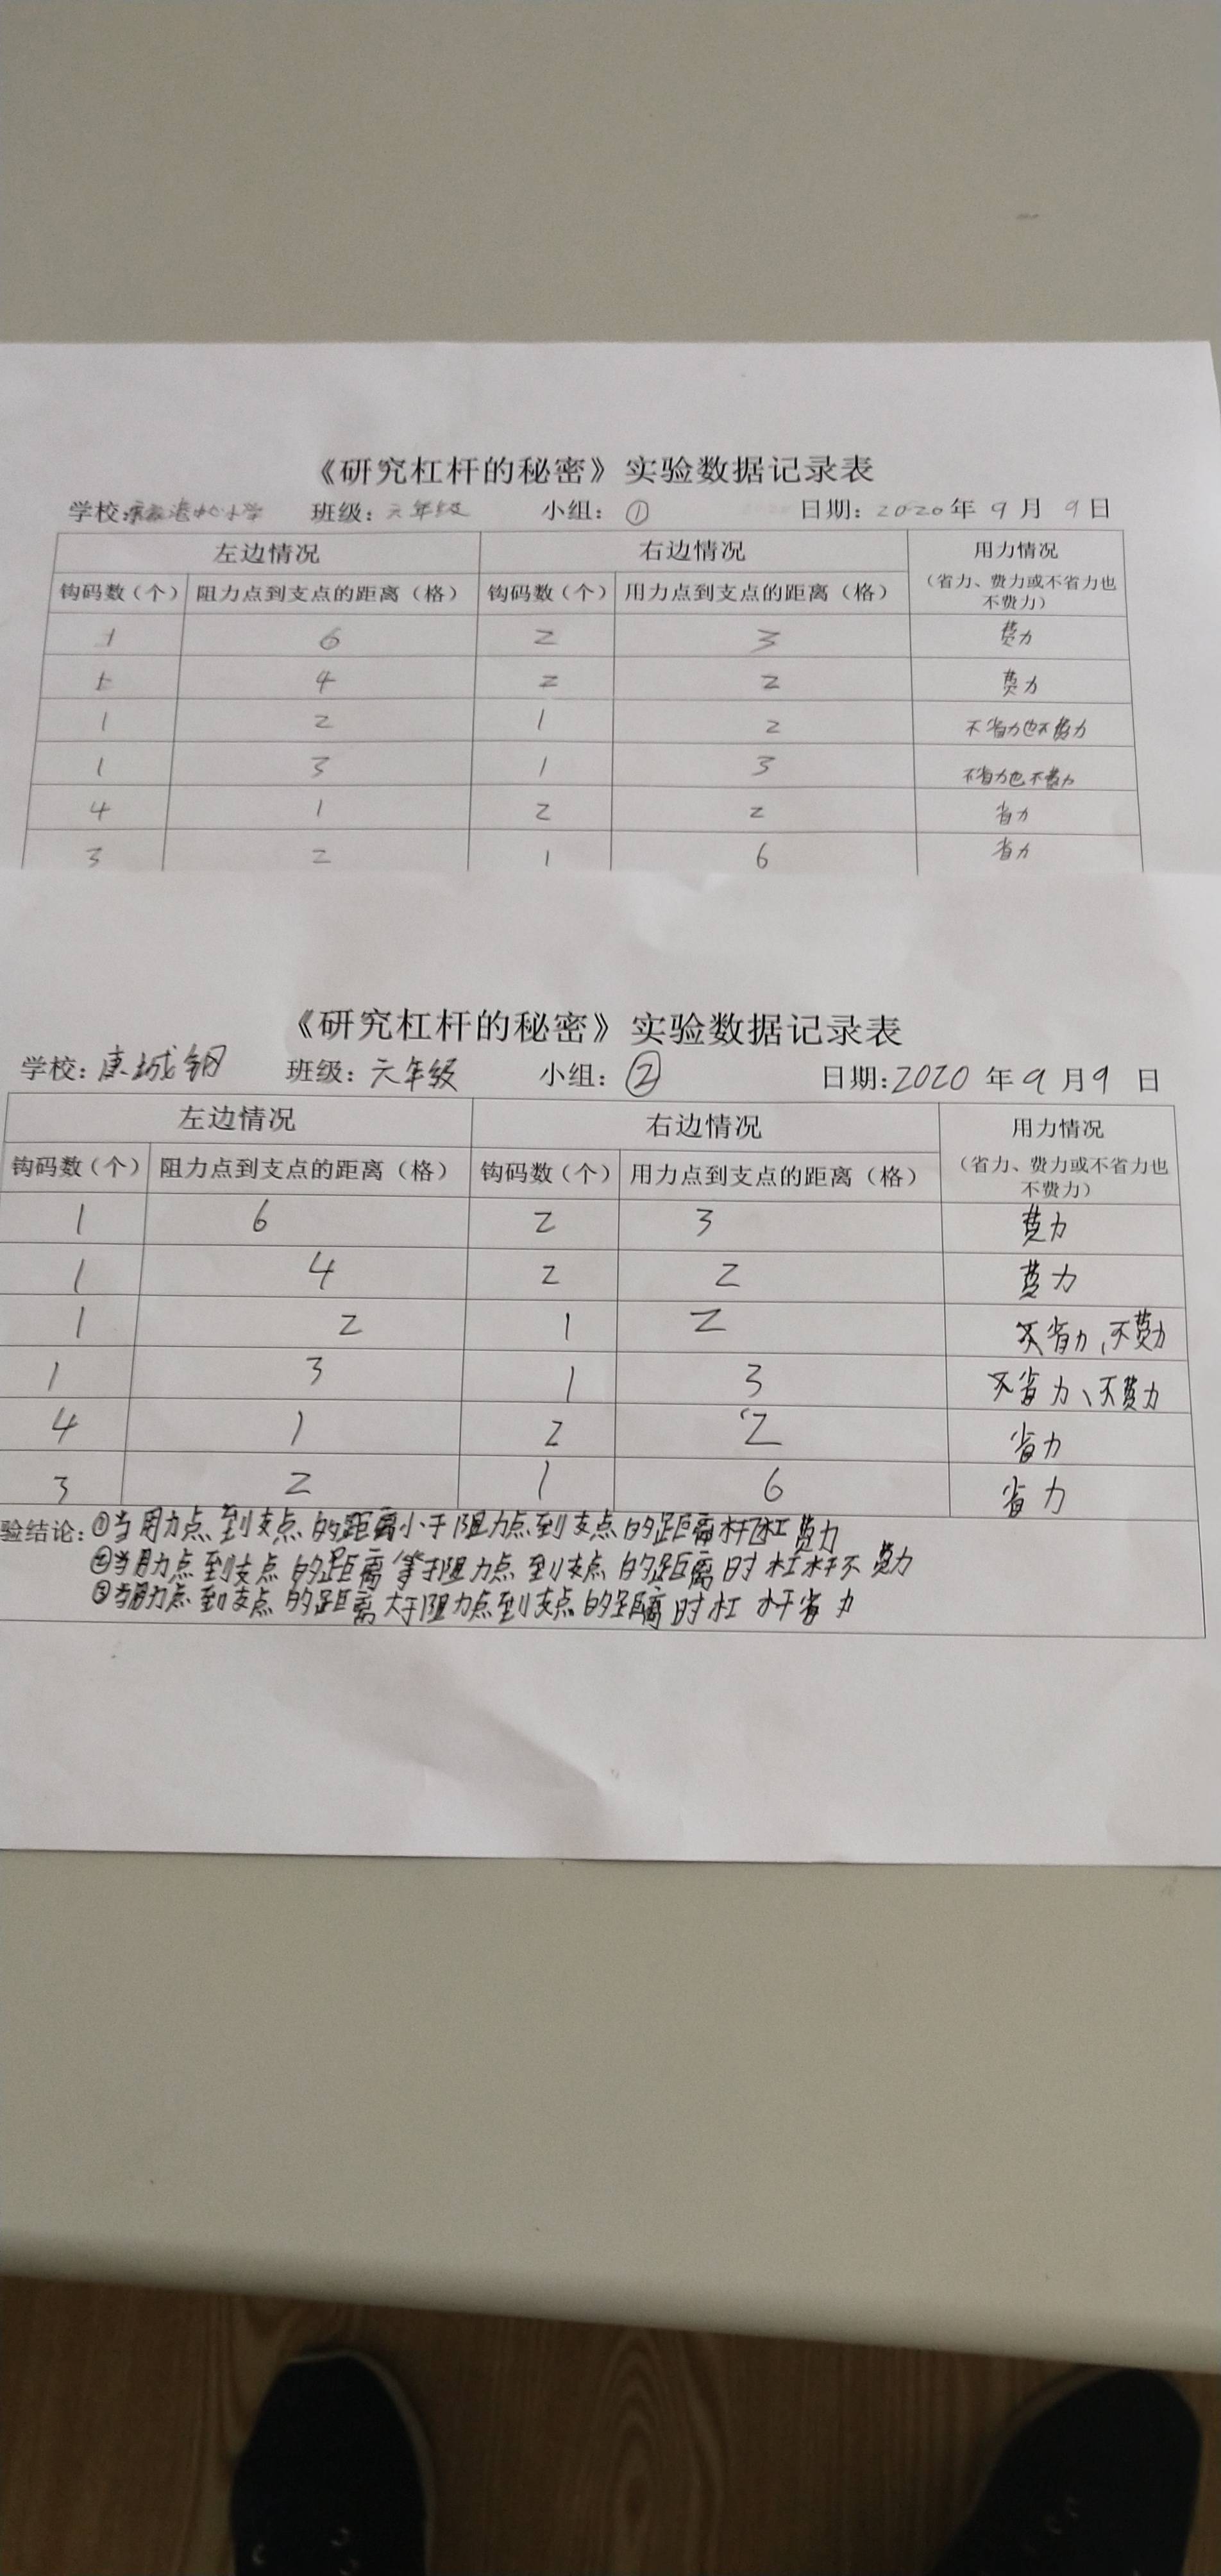 《研究杠杆的秘密》实验数据记录表
学校: 小学 班级: 六年级 小组: ① 日期: 2020年 9月 9日
左边情况 右边情况 用力情况
钩码数（个） 阻力点到支点的距离（格） 钩码数（个） 用力点到支点的距离（格） （省力、费力或不省力也
不费力）
1 6 2 3 费力
1 4 2 2 费力
1 2 1 2 不省力也不费力
1 3 1 3 不省力也不费力
4 1 2 2 省力
3 2 1 6 省力
《研究杠杆的秘密》实验数据记录表
学校: 班级: 六年级 小组: ② 日期: 2020 年 9 月 9 日
左边情况 右边情况 用力情况
钩码数（个） 阻力点到支点的距离（格） 钩码数（个） 用力点到支点的距离（格） （省力、费力或不省力也
不费力）
1 6 2 3 费力
1 4 2 2 费力
1 2 1 2 不省力、不费力
1 3 1 3 不省力、不费力
4 1 2 2 省力
3 2 1 6 省力
验结论: ①当用力点到支点的距离小于阻力点到支点的距离 费力
②当用力点到支点的距离等于阻力点到支点的距离时杠杆不费力
③当用力点到支点的距离大于阻力点到支点的距离时杠杆省力